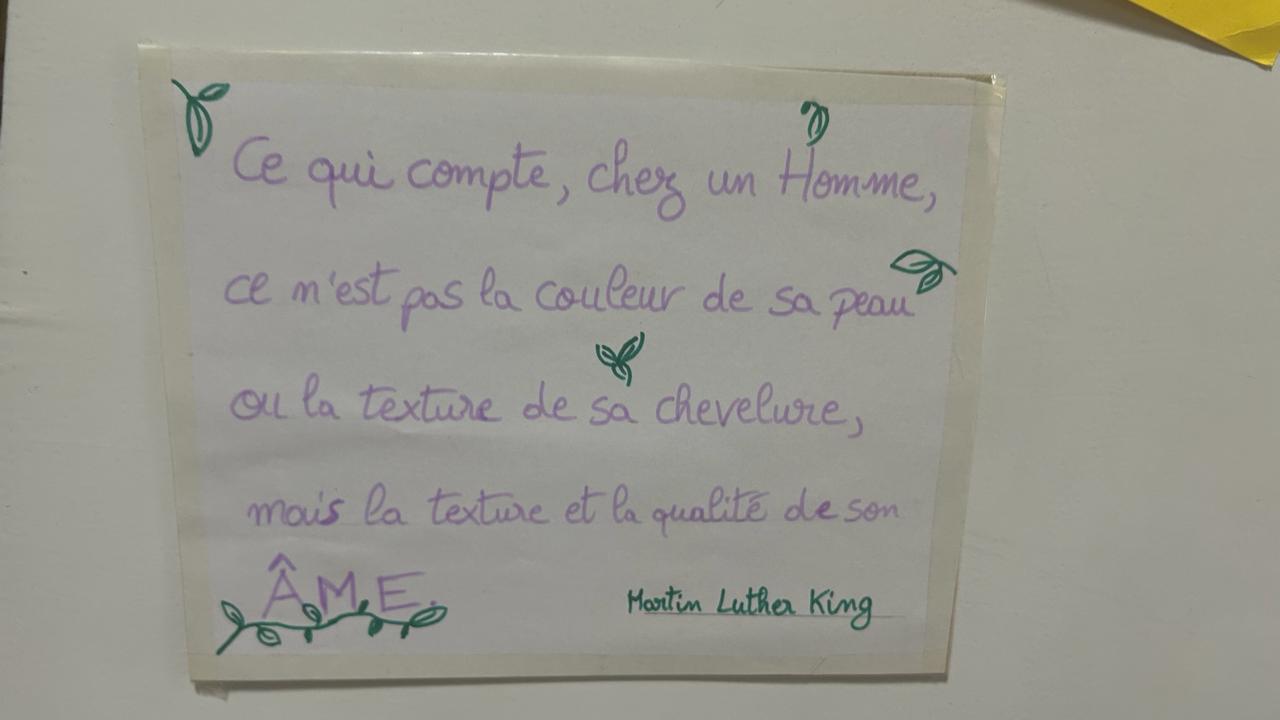 Ce qui compte, chez un Homme,
ce n'est pas la couleur de sa peau
ou la texture de sa chevelure,
mais la texture et la qualité de son
ÂME.
Martin Luther King